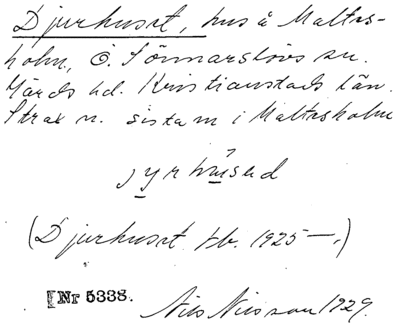 Djurhuset, hus å Maltes-
holm, Ö. Sönnarslövs sn.
Gärds hd. Kristianstads län.
Strax n. sista m i Maltesholm
jyrhused
(Djurhuset tb. 1925 —.)
[Nr 5338. Nils Nilsson 1929.